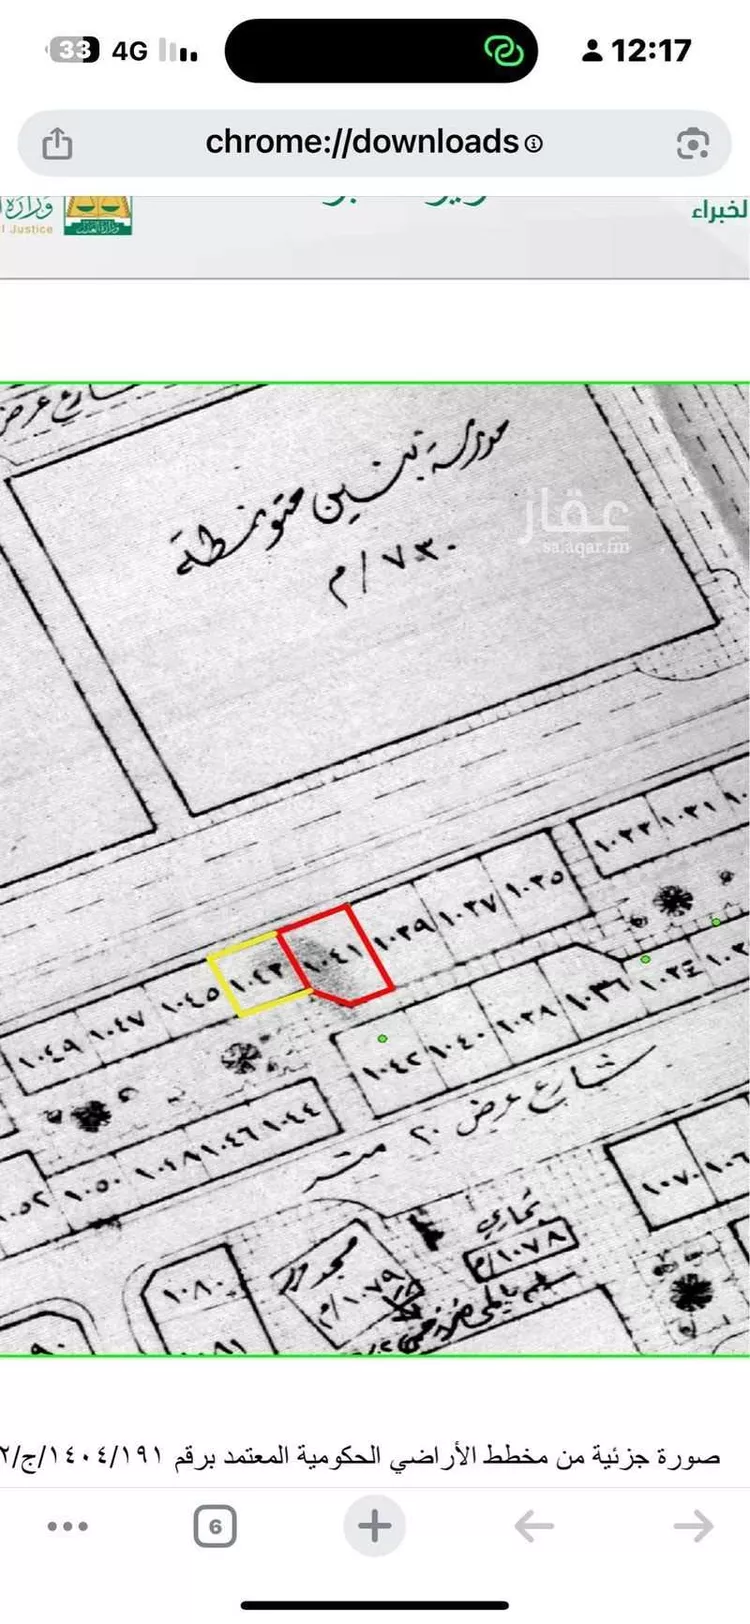 33 4G 12:17
chrome://downloads
وزارة
l Justice
وزارة العدل
لخبراء
شارع عرض
مدرسة بنين متوسطة
٧٣٠/م
عقار
sa.aqar.fm
١٠٣٣ ١٠٣١
١٠٤٩ ١٠٤٧ ١٠٤٥ ١٠٤٣ ١٠٤١ ١٠٣٩ ١٠٣٧ ١٠٣٥
١٠٤٢ ١٠٤٠ ١٠٣٨ ١٠٣٦ ١٠٣٤
شارع عرض ٢٠ متر
١٠٥٠ ١٠٤٨ ١٠٤٦ ١٠٤٤
١٠٧٠
تجاري
١٠٧٨/م
مسجد
١٠٧٩/م
١٠٨٠
صورة جزئية من مخطط الأراضي الحكومية المعتمد برقم ١٤٠٤/١٩١/ج/٢
6